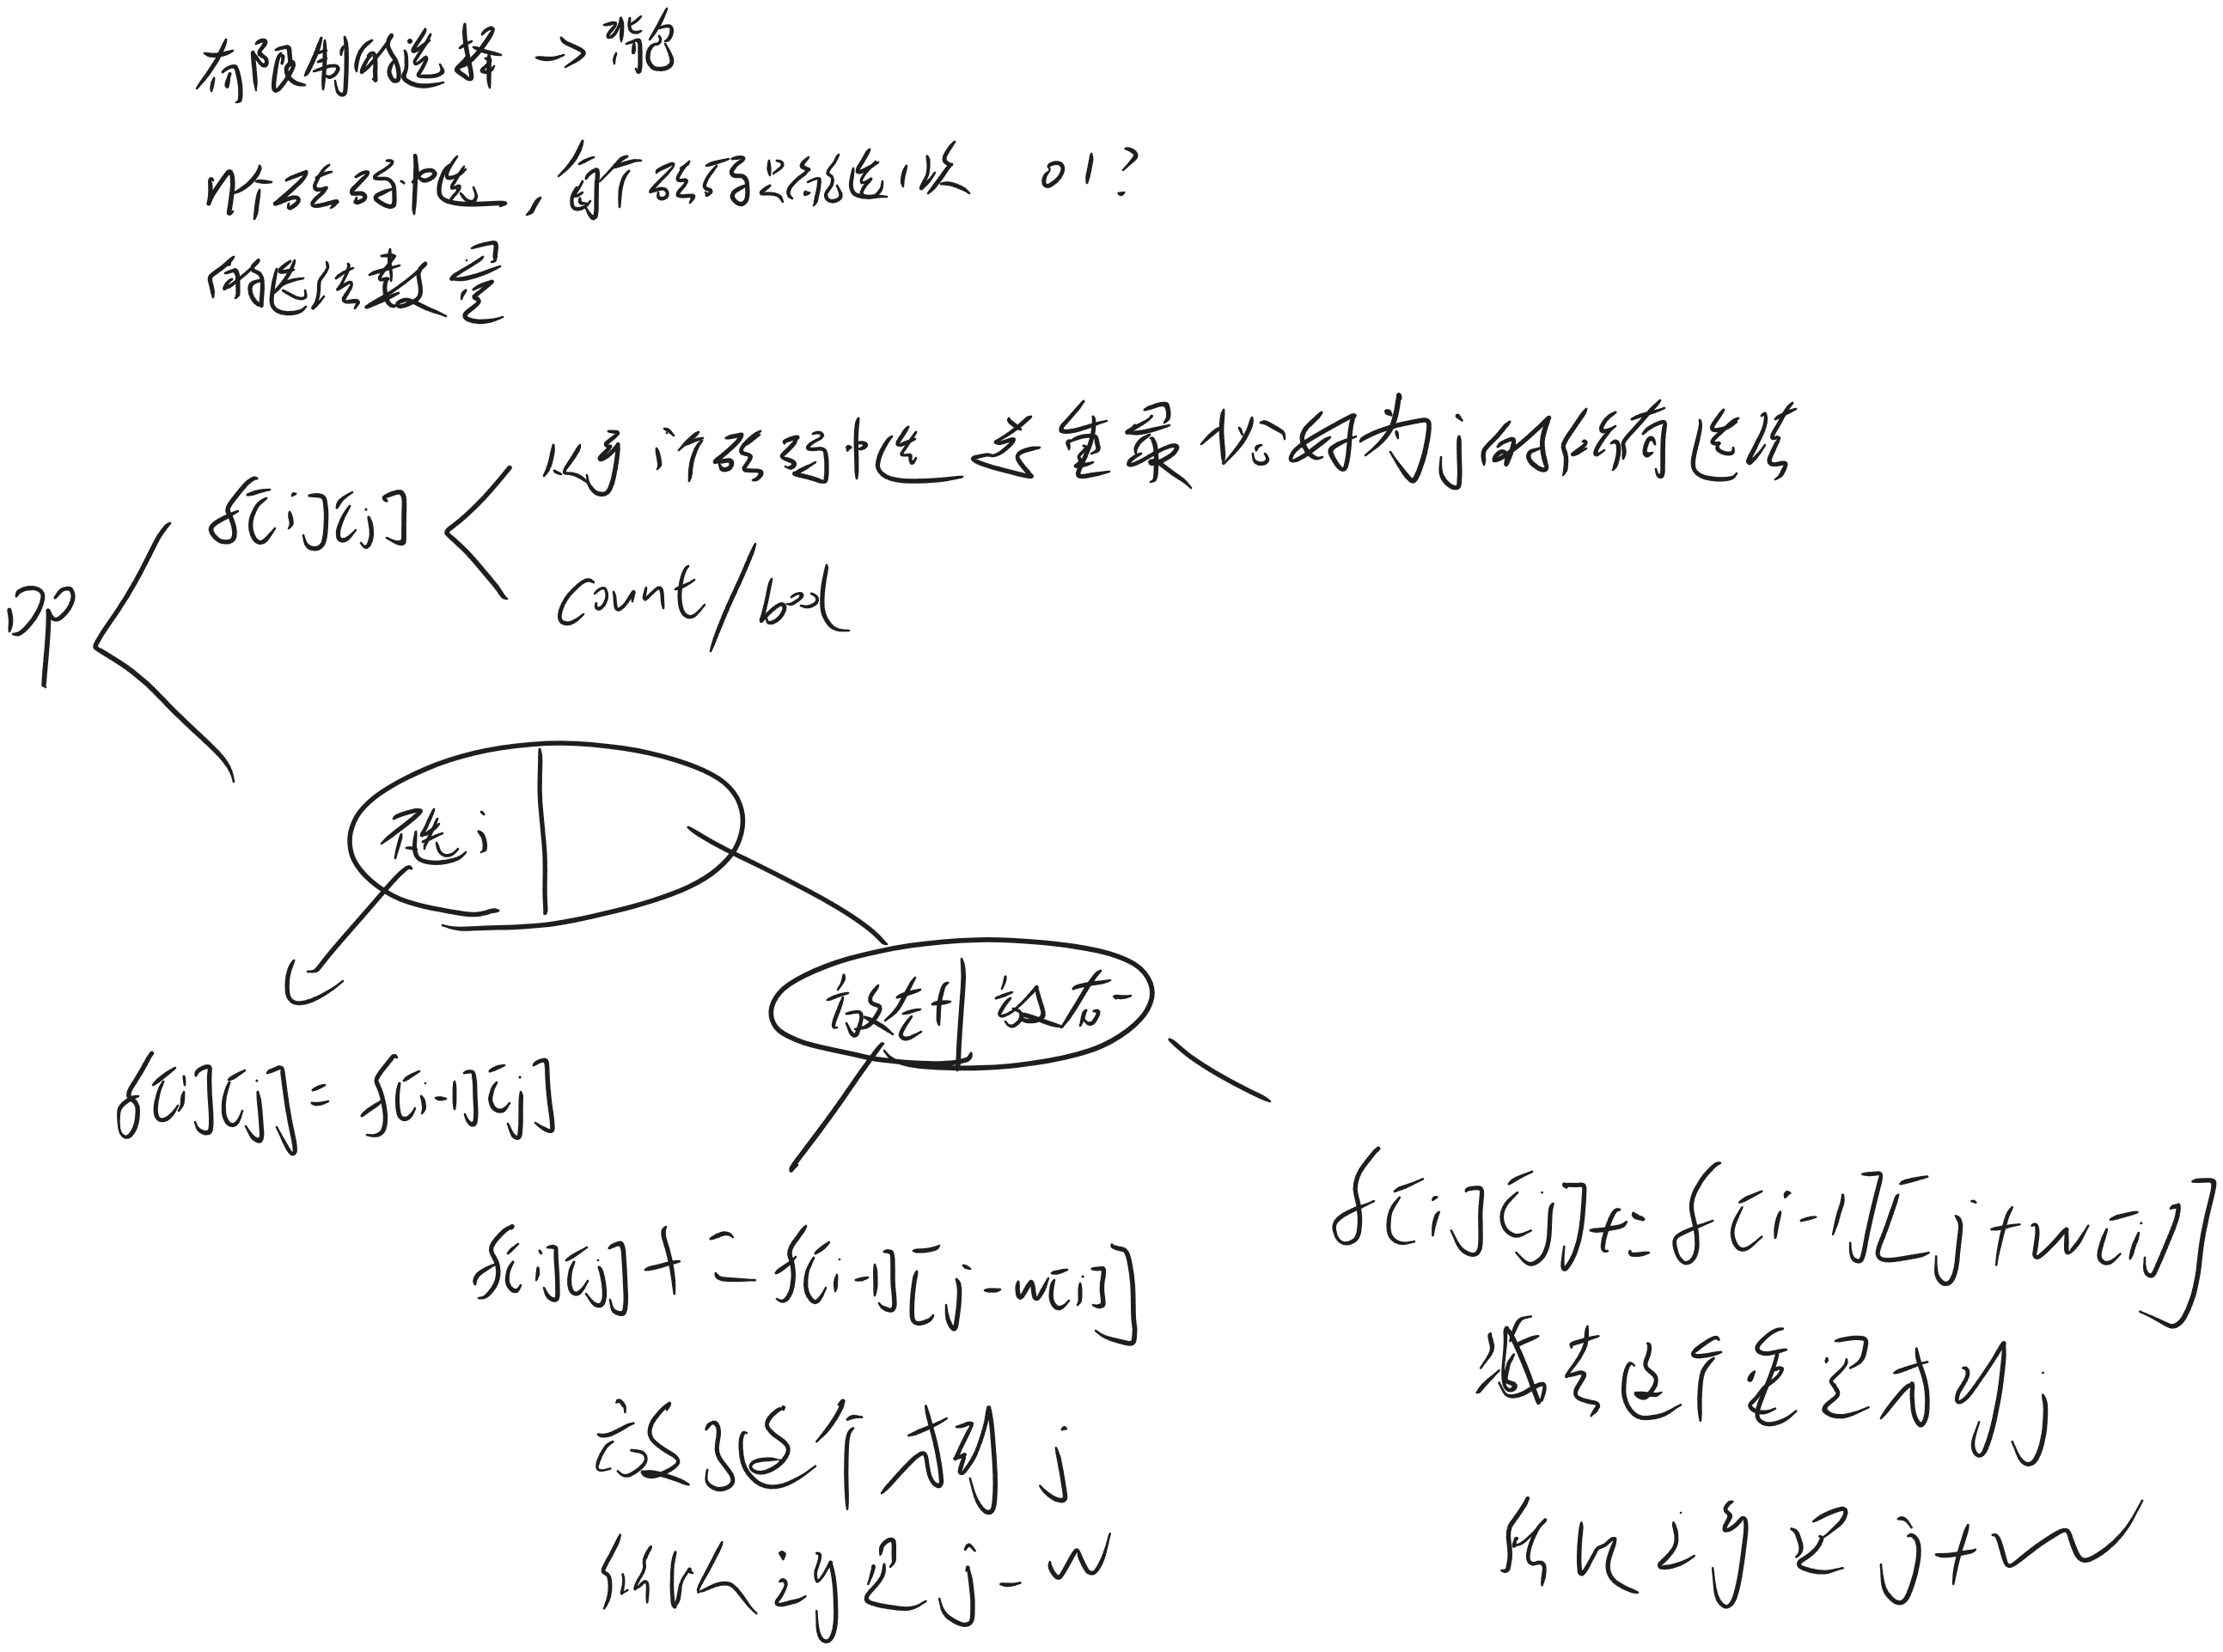 有限制的选择 -> 背包
n个砝码中选, 每个砝码可以用选1次 01?
的选法数量
从身i个砝码中选 总重量恰好为j的所有选法
f[i][j]
count/bool
DP
不选i
放进 放右
f[i][j] = f[i-1][j]
f[i][j] += f[i-1][j+w[i]]
f[i][j] += f[i-1][j-w[i]]
减去这个重量才到j
放了这个才到j
所以之前是j+w
所以之前是j-w